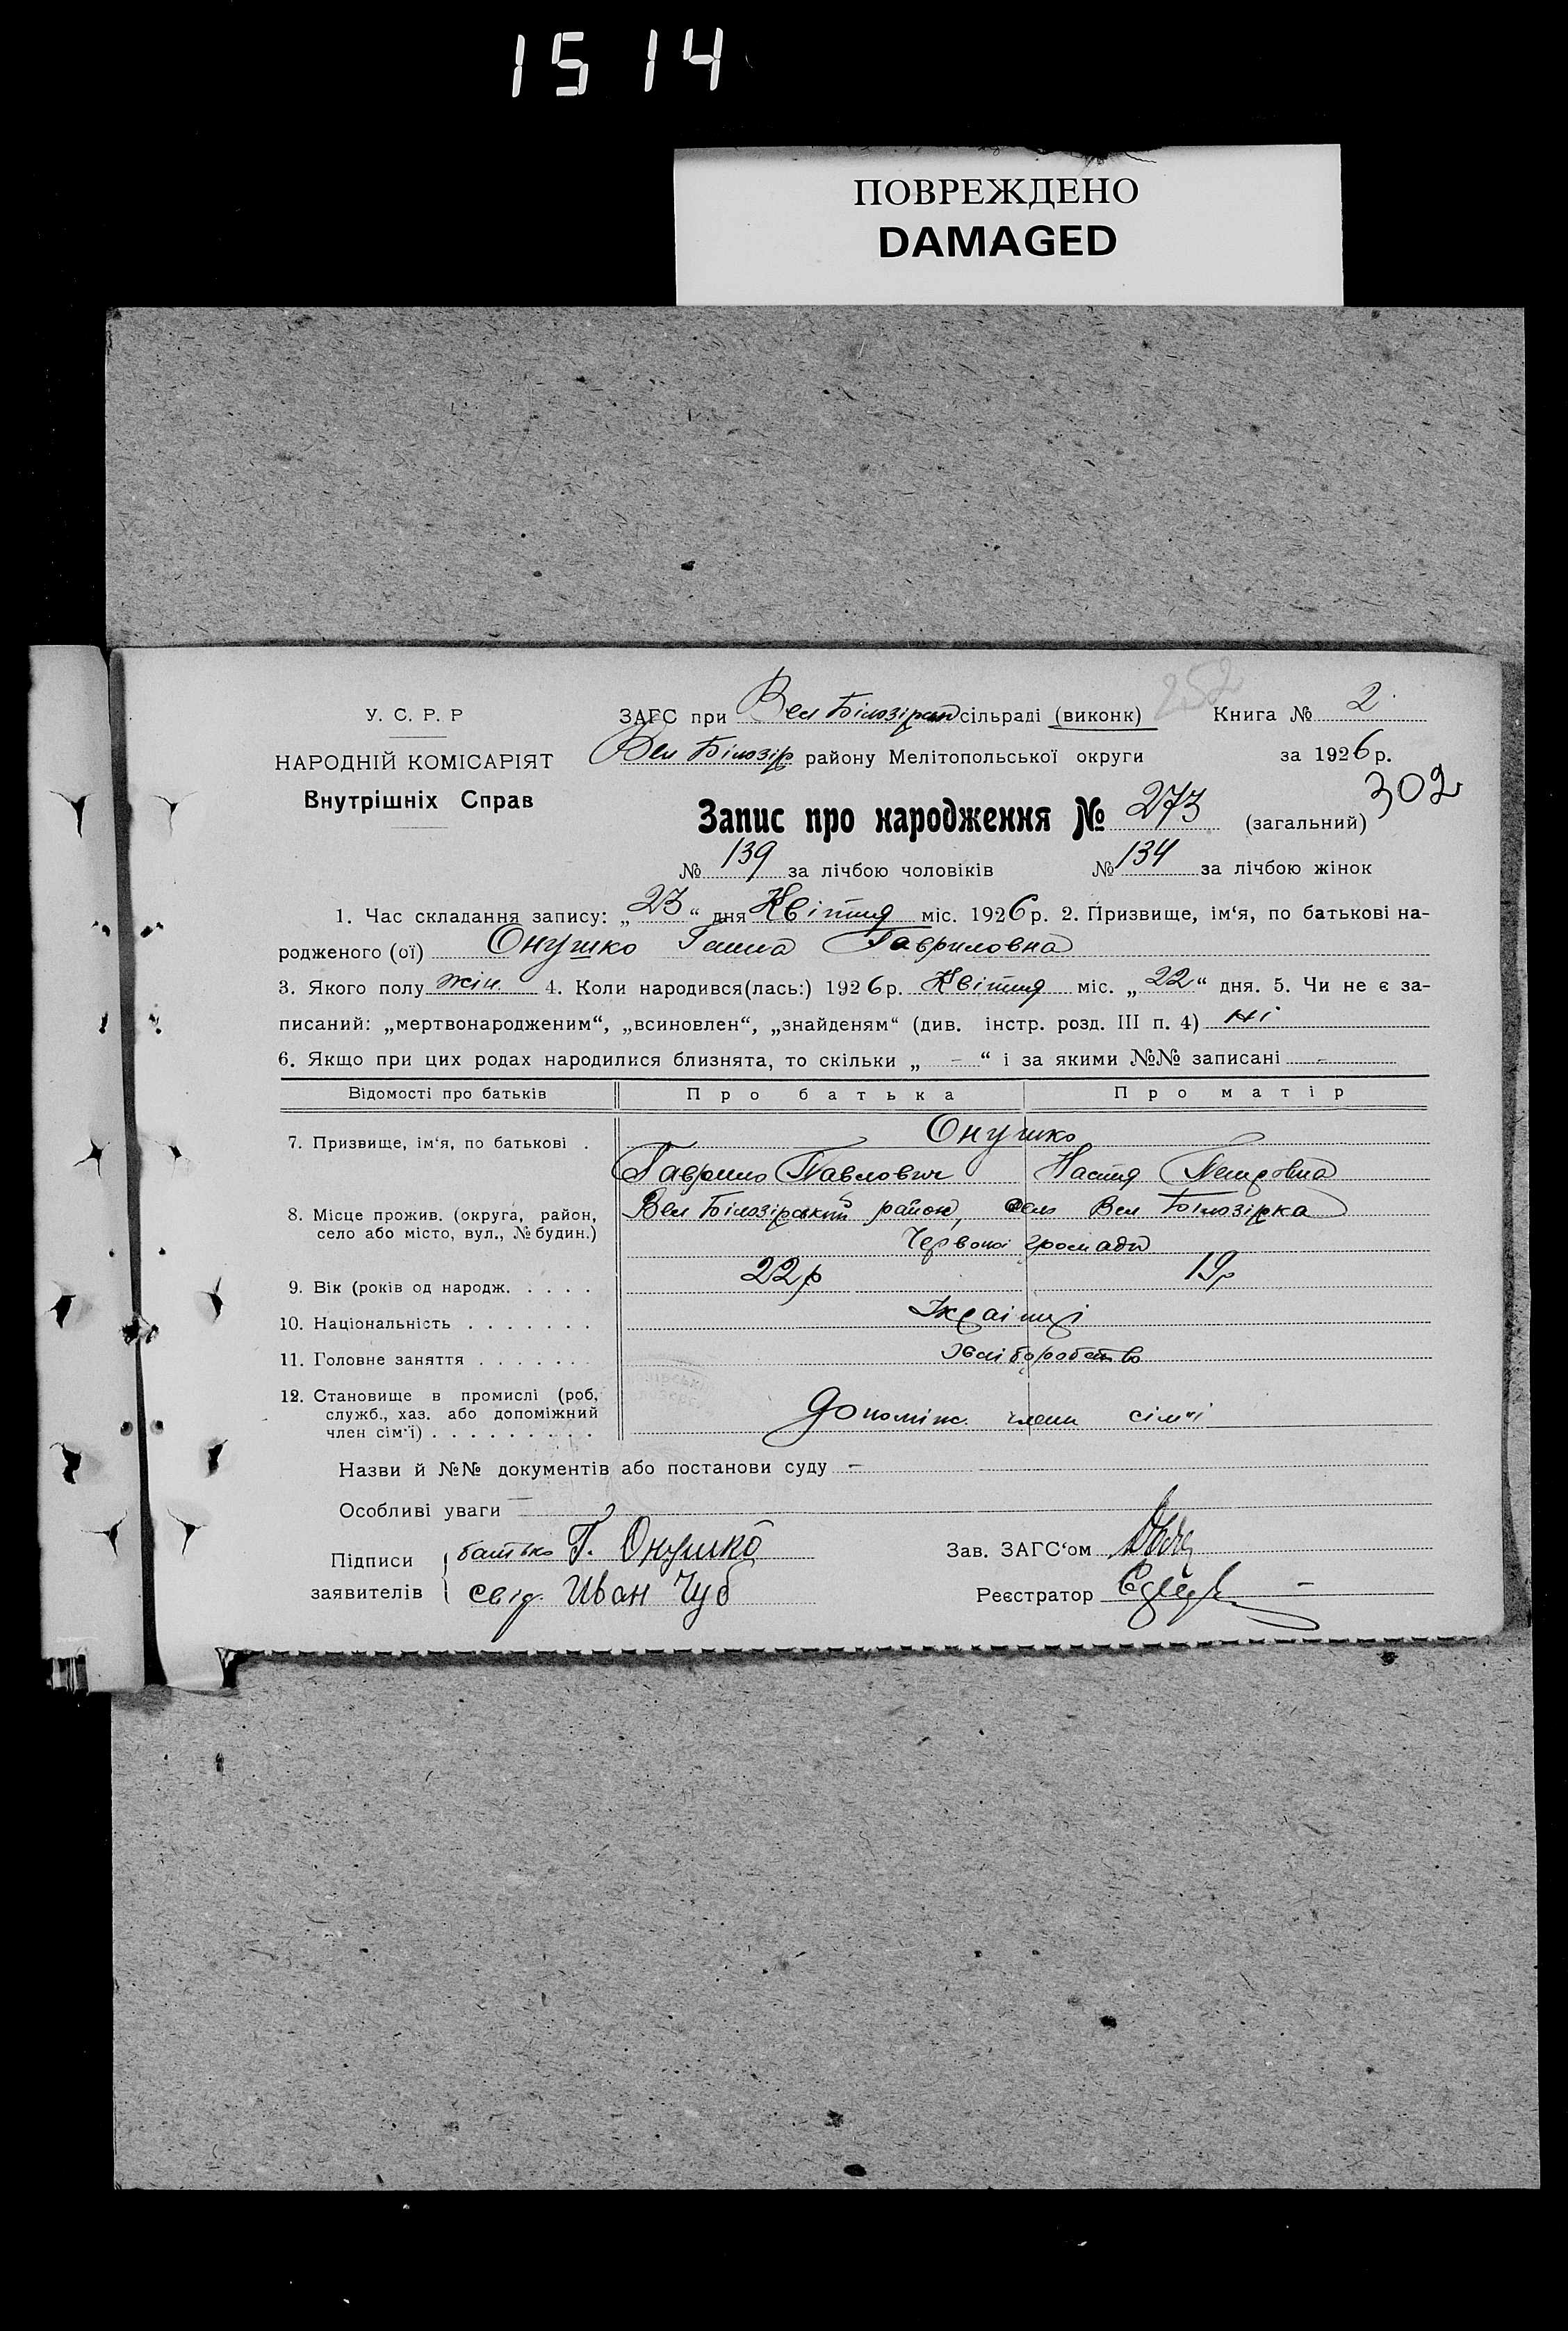 1514
ПОВРЕЖДЕНО
DAMAGED
252
У. С. Р. Р
НАРОДНІЙ КОМІСАРІЯТ
Внутрішніх Справ
ЗАГС при Вел Білозірськ сільраді (виконк) Книга № 2
Вел Білозір району Мелітопольської округи за 1926 р.
302
Запис про народження № 273 (загальний)
№ 139 за лічбою чоловіків № 134 за лічбою жінок
1. Час складання запису: „23“ дня Квітня міс. 1926 р. 2. Призвище, ім‘я, по батькові на-
родженого (ої) Онушко Ганна Гавриловна
3. Якого полу жін. 4. Коли народився(лась:) 1926 р. Квітня міс. „22“ дня. 5. Чи не є за-
писаний: „мертвонародженим“, „всиновлен“, „знайденям“ (див. інстр. розд. III п. 4) ні
6. Якщо при цих родах народилися близнята, то скільки „ – “ і за якими №№ записані –
Відомості про батьків Про батька Про матір
7. Призвище, ім‘я, по батькові . Онушко
Гаврило Павлович Настя Петровна
8. Місце прожив. (округа, район, село або місто, вул., № будин.) Вел Білозірський район, село Вел Білозірка
Червоної громади
9. Вік (років од народж. . . . . 22 р 19 р
10. Національність . . . . . . . Українці
11. Головне заняття . . . . . . . Хліборобство
12. Становище в промислі (роб, служб., хаз. або допоміжний член сім‘ї) . . . . . . . . . Допоміж. члени сім'ї
Назви й №№ документів або постанови суду –
Особливі уваги –
Підписи заявителів батько Г. Онушко
свід. Иван Чуб
Зав. ЗАГС‘ом
Реєстратор